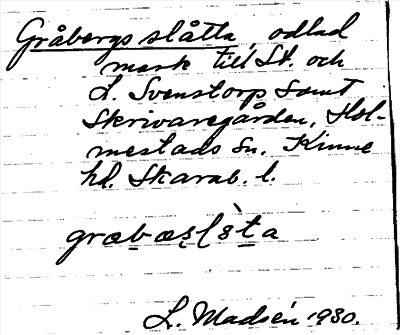 Gråbergs slåtta, odlad
mark till St. och
L. Svenstorp samt
Skrivaregården, Hol-
mestads sn. Kinne
hd. Skarab. l.
L. Madsén 1930.